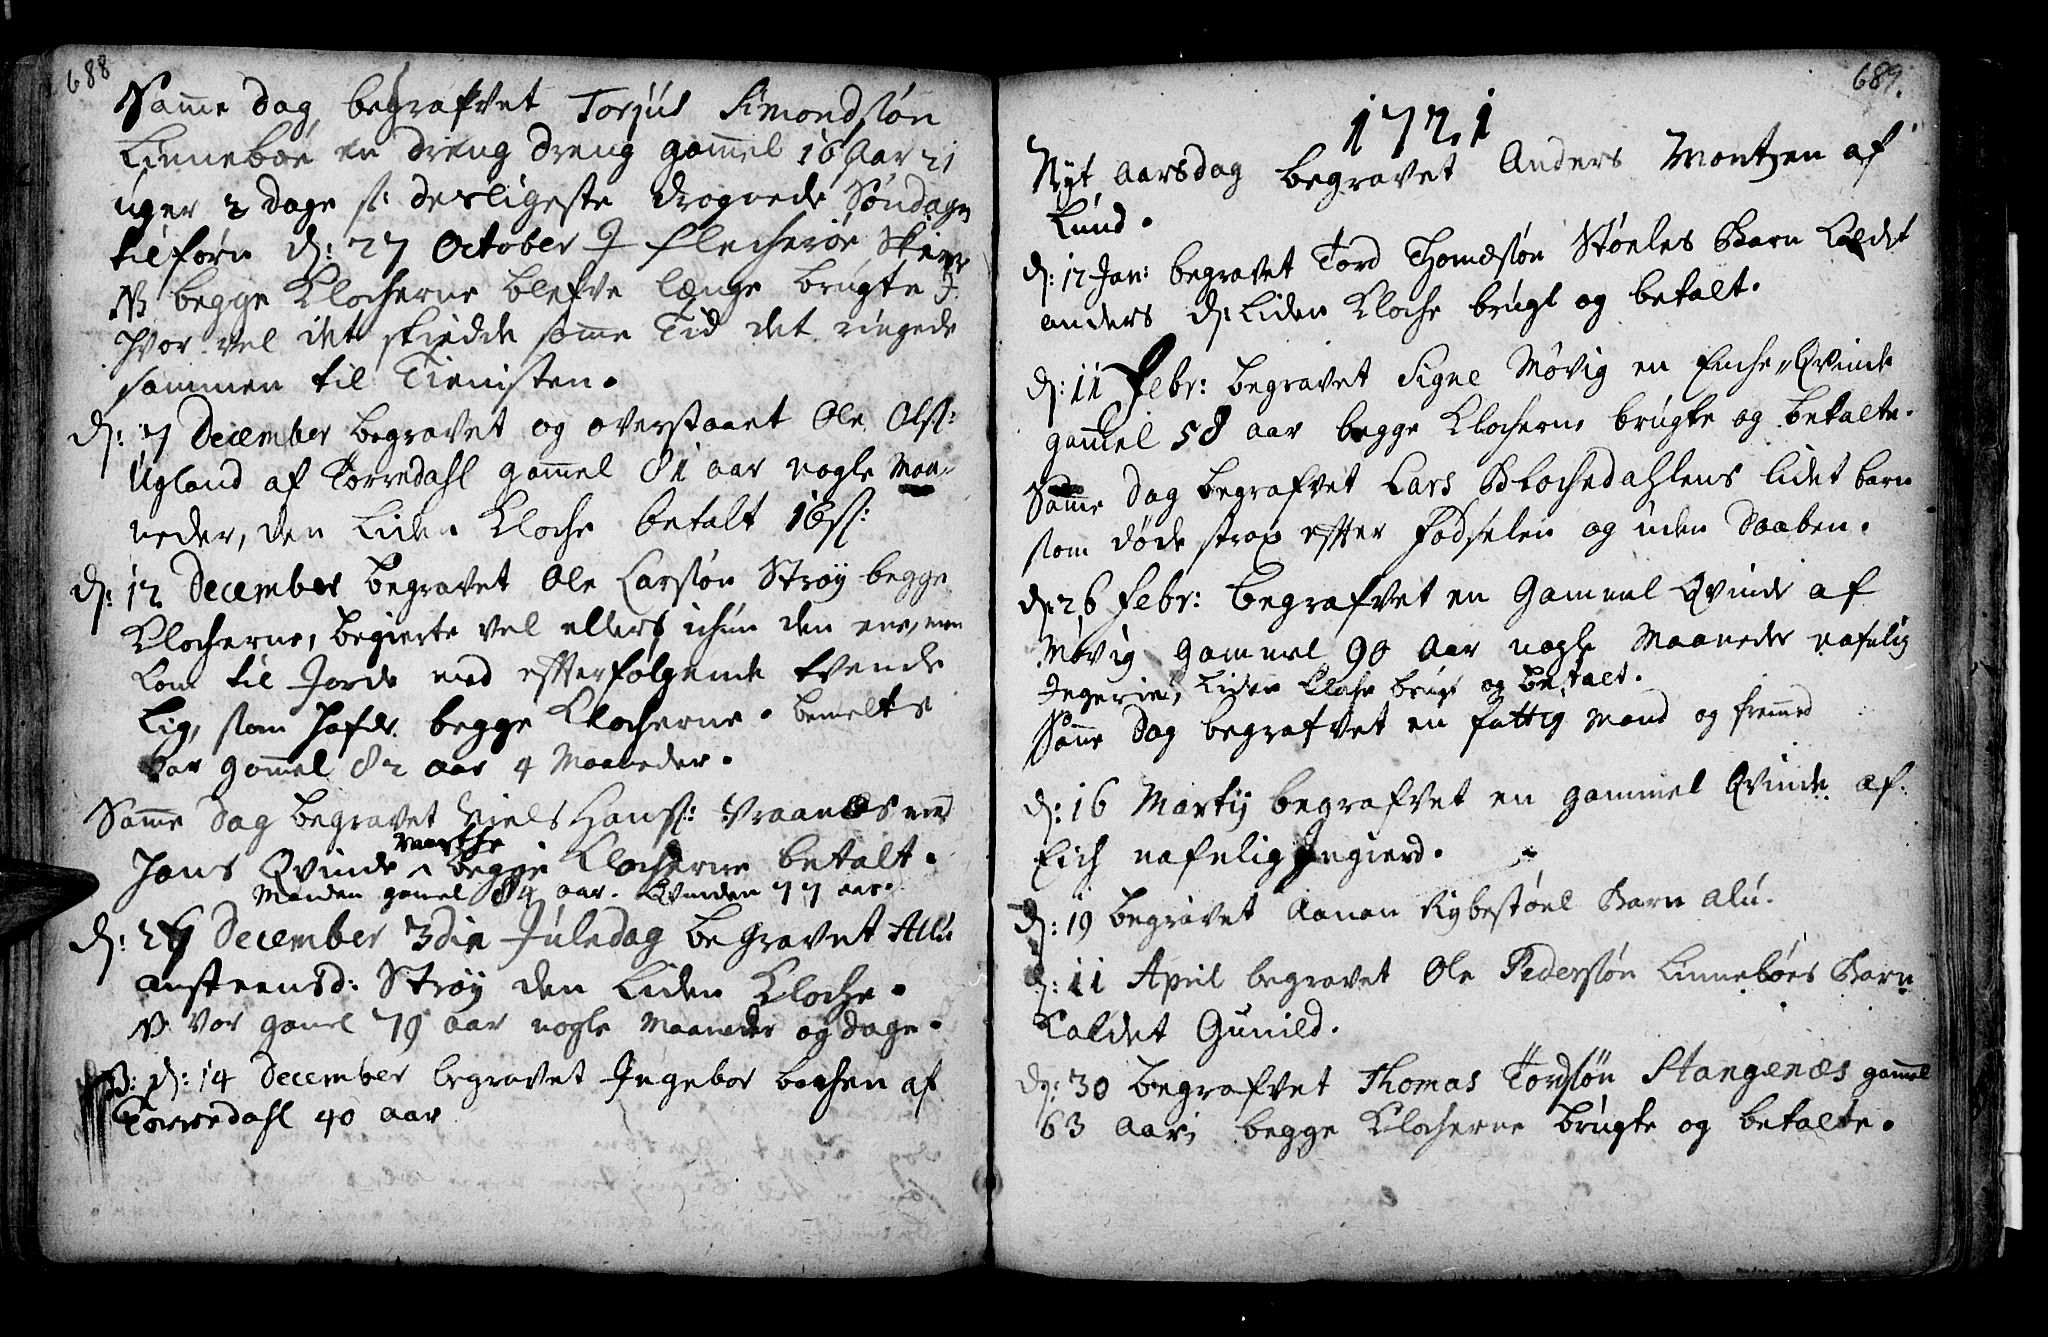 688
Samme Dag begrafvet Torjus Simondsøn
Linneboe en dreng dreng gammel 16 Aar 21
uger 2 dage s: desligeste drognede Søndagen
tilforn d: 27 October I Flecherøe
NB begge Klocherne blefve længe brugte I
hvor vel det skiedde samme Tid det ringede
sammen til Tienisten.
d: 7 December begravet og overstaaet Ole Olss:
Ugland af Torredahl gammel 81 aar nogle Maa-
neder, den Liden Kloche betalt 16 s:
d: 12 December begravet Ole Larssøn Strøy begge
Klocherne, begierte vel ellers ichun den ene, men
kom til Jorde med efterfølgende tvende
Lig, som hafde begge Klocherne. bemelte
var gammel 82 aar 4 Maaneder.
Samme Dag begravet Niels Hanss: Vraanes med
hans Qvinde Marthe begge Klocherne betalt.
Manden gamel 84 aar. Qvinden 77 aar.
d: 27 December 3die Juledag begravet Allu
Aansteensd: Strøy den Liden Kloche.
NB Var gamel 79 aar nogle Maaneder og dage.
NB: d: 14 December begravet Ingebor bachen af
Torredahl 40 aar
689.
1721
Nyt Aarsdag begravet Anders Montzen af
Lund.
d: 12 Jan: begravet Tord Thomæsøn Støeles Barn Kaldet
Anders d: Liden Kloche brugt og betalt.
d: 11 Febr: begravet Signe Møvig en Enche-Qvinde
gammel 58 aar begge Klocherne brugte og betalte.
Samme Dag begrafvet Lars Blochedahlens lidet barn
som døde strax efter Fødselen og uden Daaben.
d: 26 Febr: begrafvet en Gammel Qvinde af
Møvig Gammel 90 Aar nogle Maaneder nafnlig
Ingerie, Liden Kloche brugt og betalt.
Samme Dag begrafvet en fattig Mand og fremmed
d: 16 Martij begrafvet en gammel Qvinde af
Eich nafnlig Ingierd.
d: 19 begravet Aanon Rybestøel Barn Alu.
d: 11 April begravet Ole Pedersøn Linneboes Barn
Kaldet Gunild.
d: 30 begrafvet Thomas Tordsøn Stangenæs gammel
63 Aar, begge Klocherne brugte og betalte.